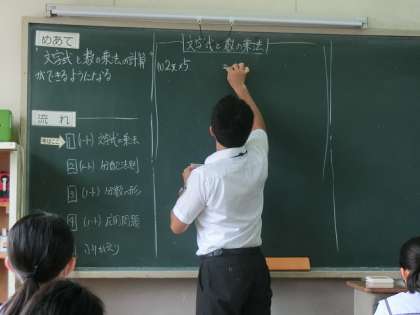 めあて
文字式と数の乗法の計算
ができるようになる
文字式と数の乗法
(1) 2x×5
=
流れ
1 (ノート) 文字式の乗法
2 (ノート) 分配法則
3 (ノート) 分数の形
4 (ノート) 応用問題
5 ふりかえり